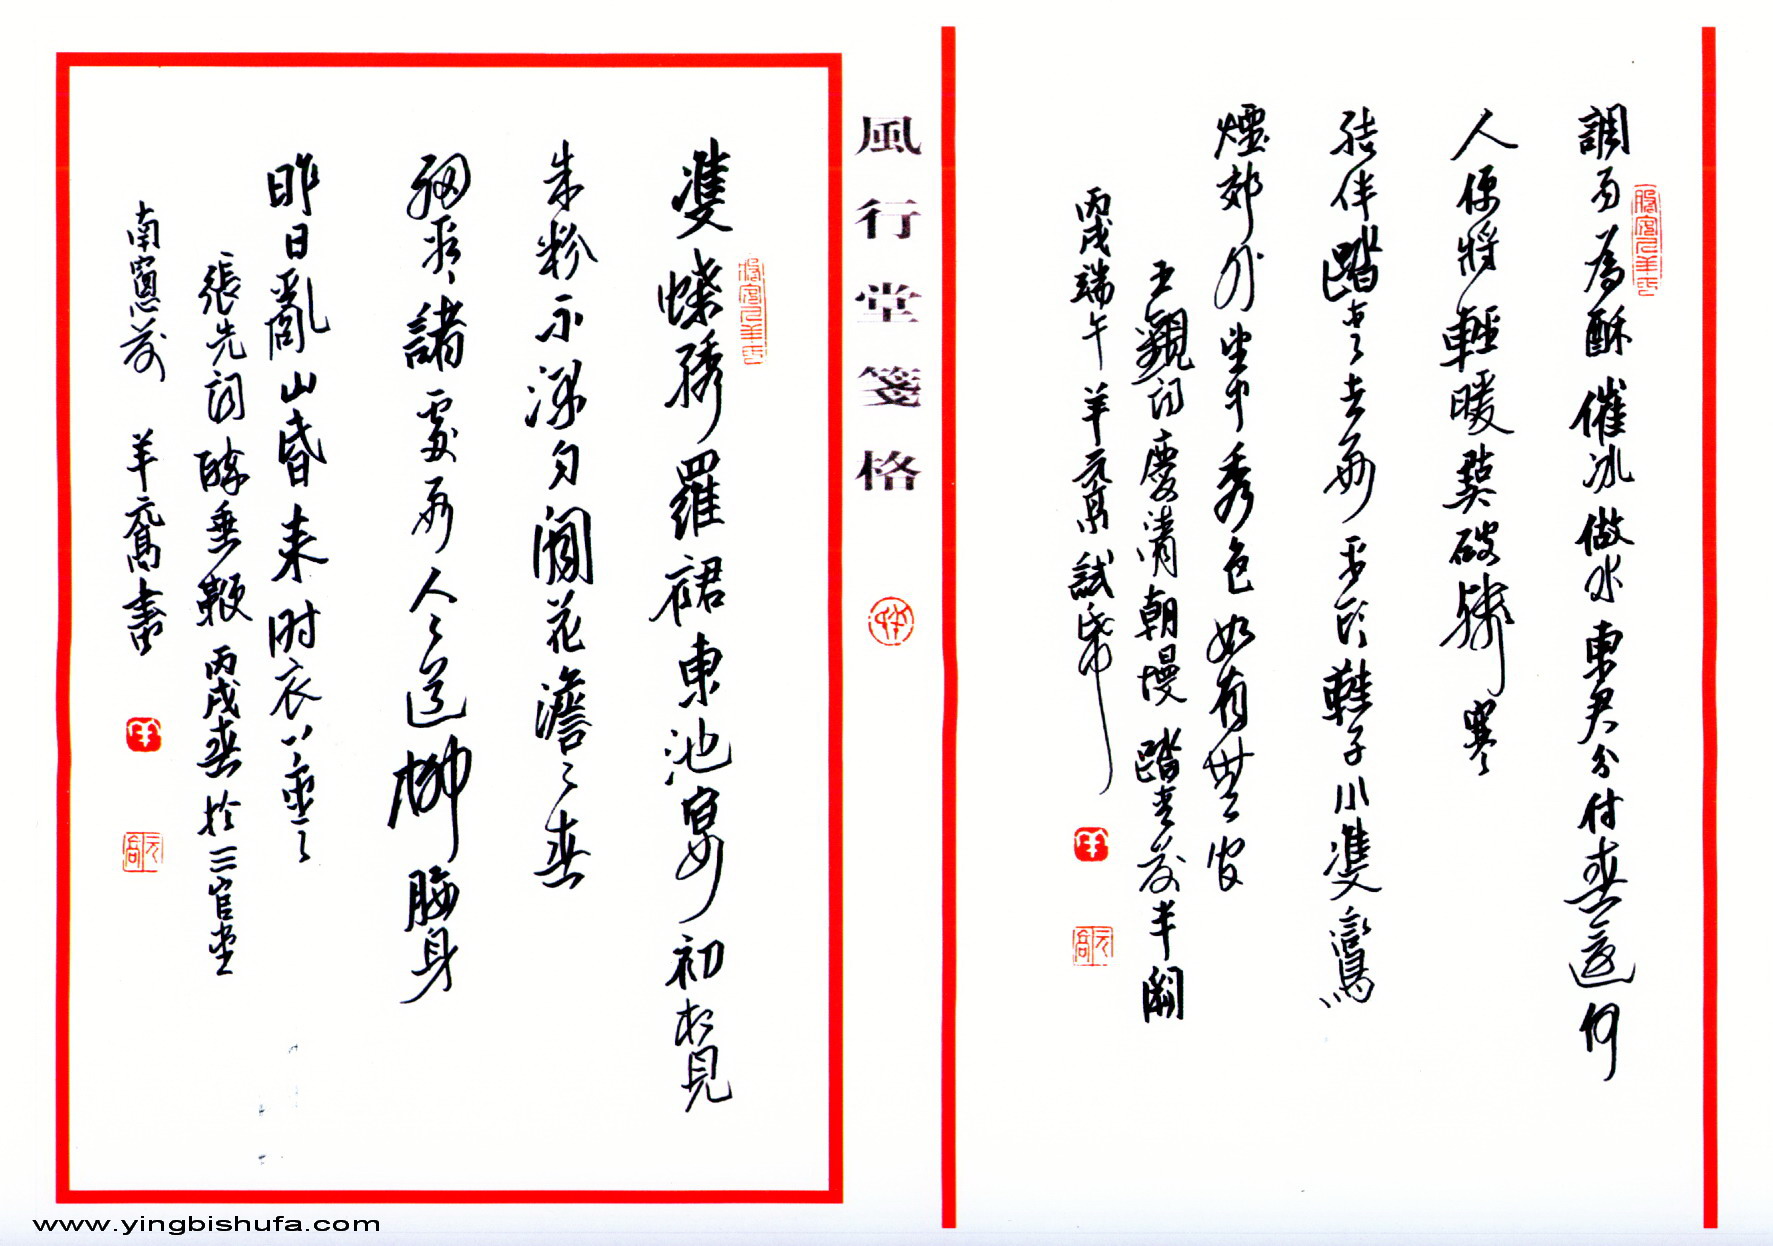 調雨為酥催冰做水東君分付春還何
人便將輕暖點破殘寒
結伴踏青去好平頭鞋子小雙鸞
煙郊外望中秀色如有無間
王觀詞慶清朝慢 踏青前半闋
丙戌端午羊元喬試筆
羊
元喬
風行堂箋格
雙蝶綉羅裙東池宴初相見
朱粉不深勻閒花澹〻春
細看諸處好人〻道柳腰身
昨日亂山昏来时衣上雲
張先詞醉垂鞭丙戌春於三官堂
南窗前 羊元喬書
羊
元喬
www.yingbishufa.com